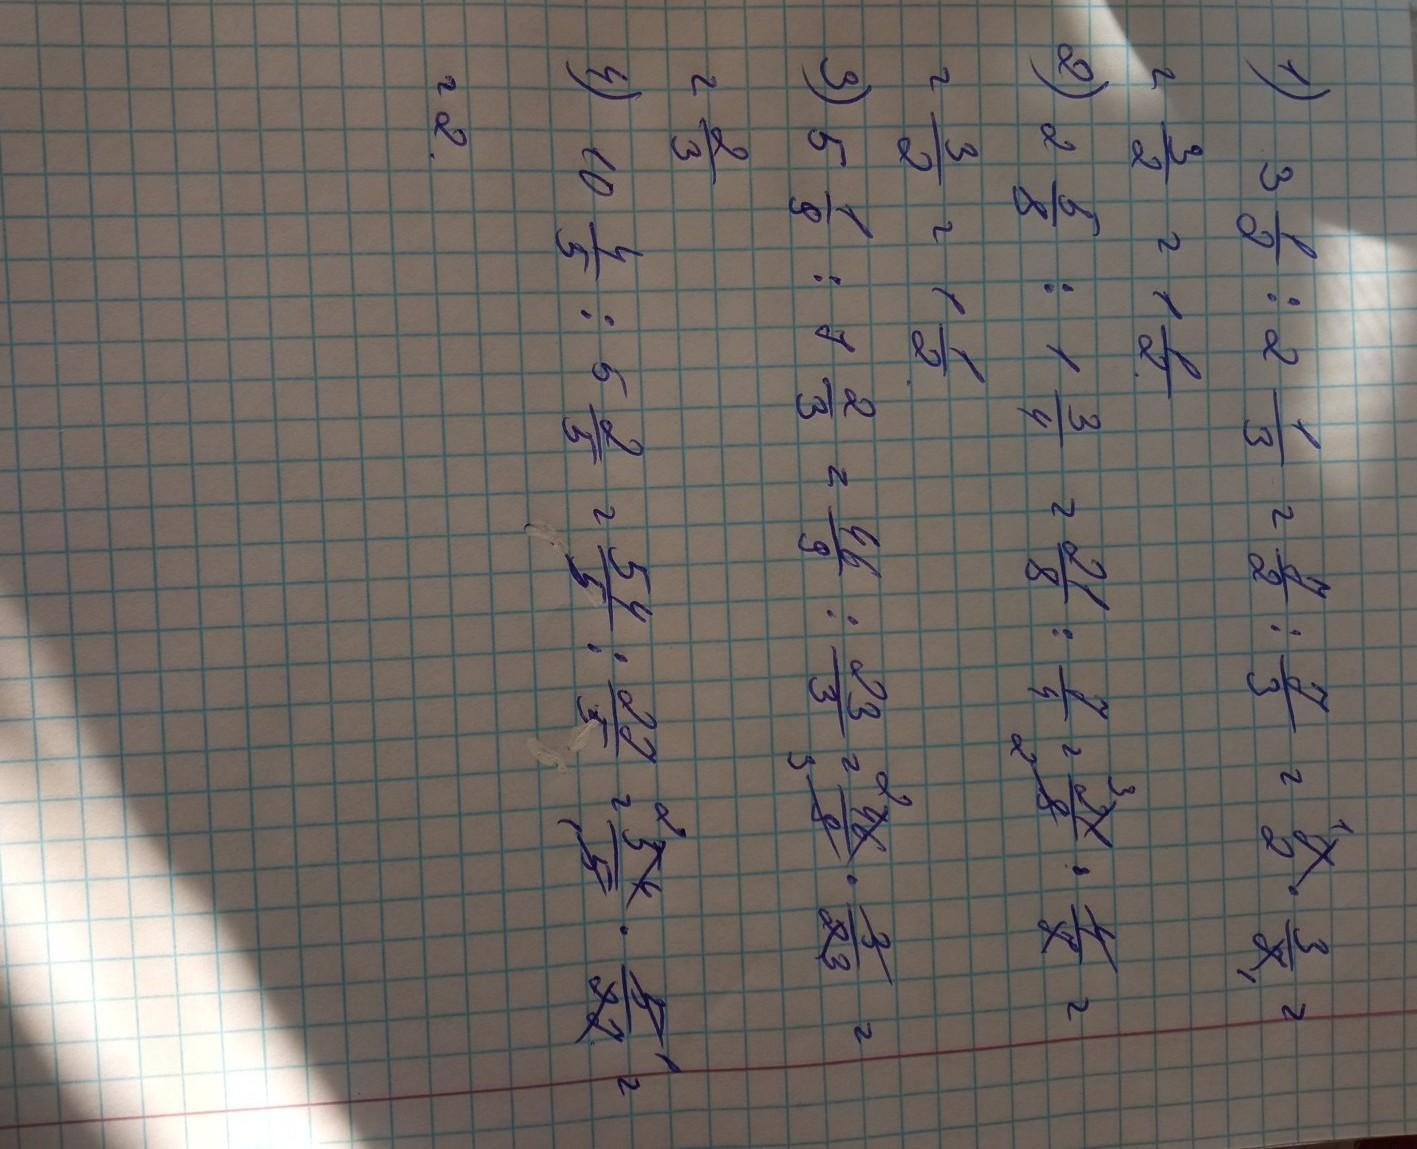 1) 3 1/2 : 2 1/3 = 7/2 : 7/3 = 7/2 · 3/7 =
= 3/2 = 1 1/2.
2) 2 5/8 : 1 3/4 = 21/8 : 7/4 = 21/8 · 4/7 =
= 3/2 = 1 1/2.
3) 5 1/9 : 7 2/3 = 46/9 : 23/3 = 46/9 · 3/23 =
= 2/3
4) 10 4/5 : 5 2/5 = 54/5 : 27/5 = 54/5 · 5/27 =
= 2.